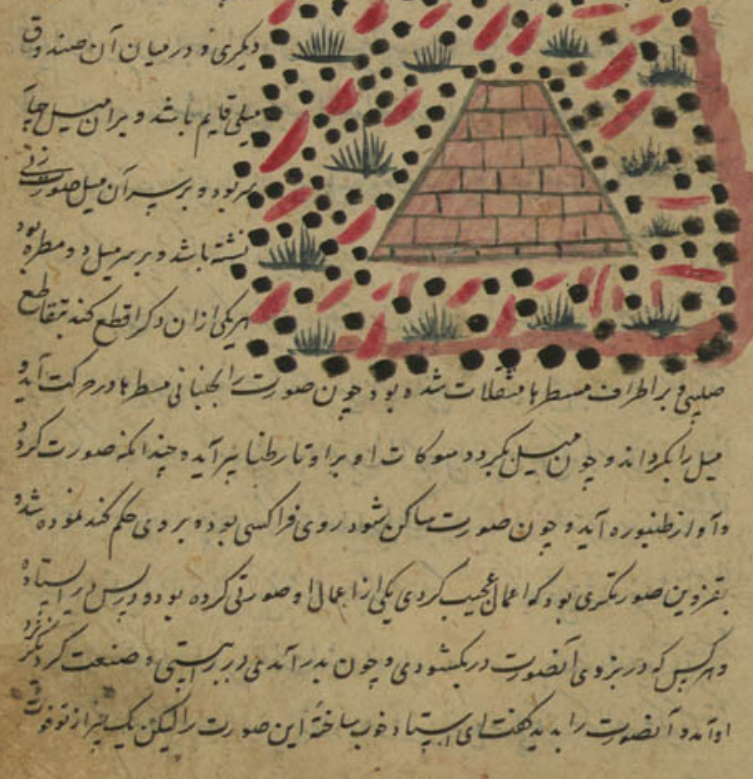 دیگری و در میان آن صندوق
میلی قایم باشد و بران میل
سر بود و بر سر آن میل صورت زنی
نشسته باشد و بر سر میل دو مطره بود
هر یکی ازان دکر را قطع کند بتقاطع
صلیبی و بر اطراف مسطرها مثقلات شده بود چون صورت را بجنبانی مسطرها در حرکت آید و
میل را بکرداند و چون میل بکردد او بر اوتار طنابیر آیده چندانکه صورت کردد
و آواز طنبوره آید و چون صورت ساکن شود روی فرا کسی بوده بر وی حکم کند نموده شد
بقزوین صورتکری بود که اعمال عجیب کردی یکی از اعمال او صورتی کرده بود در پس در ایستاده
و هر کس که در بزدی آنصورت در بکشودی و چون بدر آمدی در ببستی و صنعت کر دیگر
او آمد و آنصورت را بدید کفت ای استاد خوب ساخته این صورت را لیکن یک چیز از تو فوت